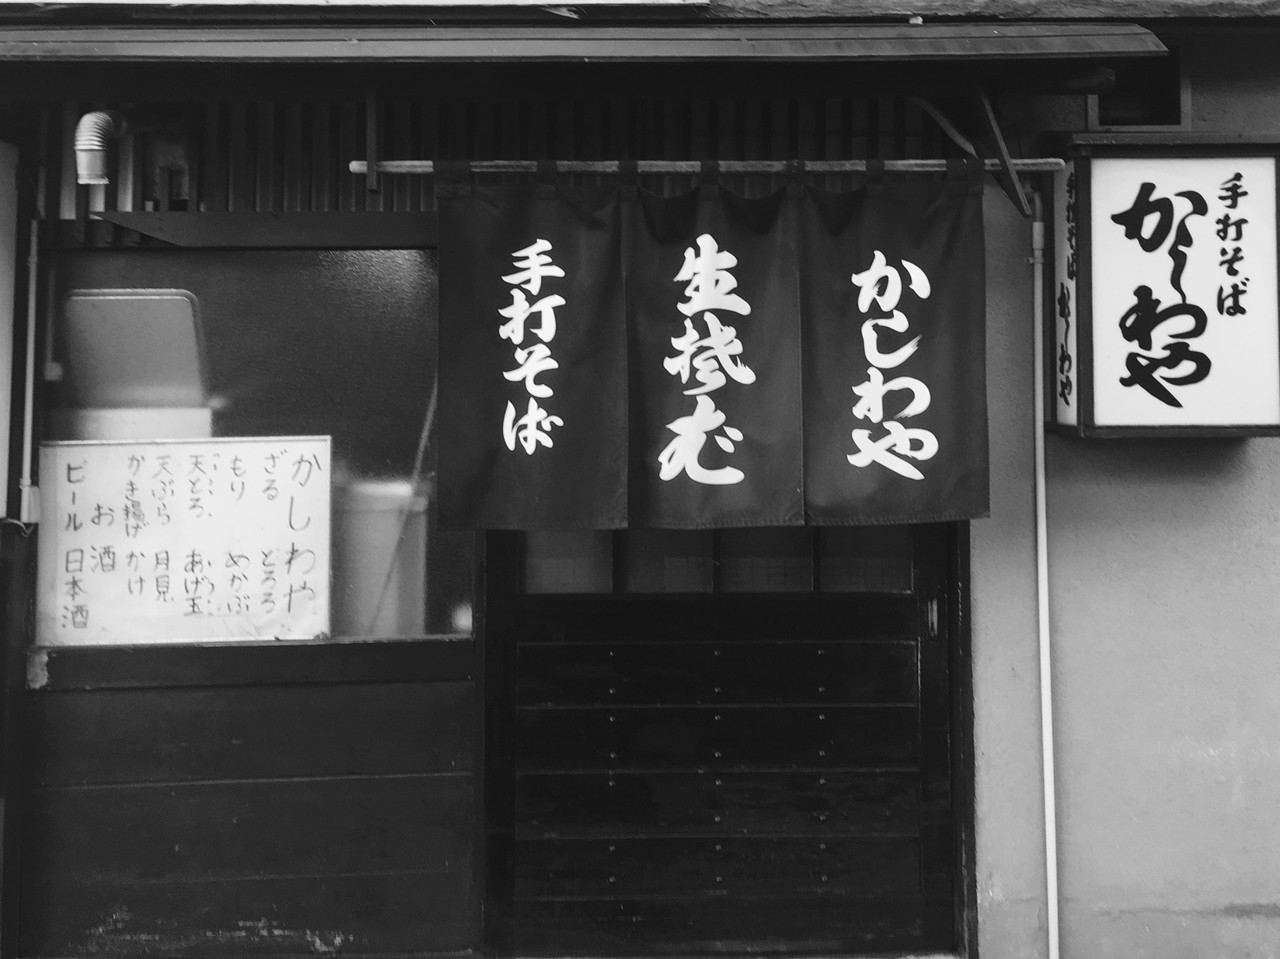 かしわや
生そば
手打そば
手打そば
かしわや
手打そば かしわや
かしわや
ざる とろろ
もり めかぶ
天とろ あげ玉
天ぷら 月見
かき揚げ かけ
お酒
ビール 日本酒